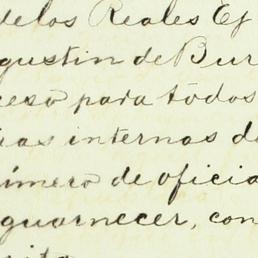 delos Reales Ej
gustin de Bur
ceso para todos
ias internas de
úmero de oficia
guarnecer, con